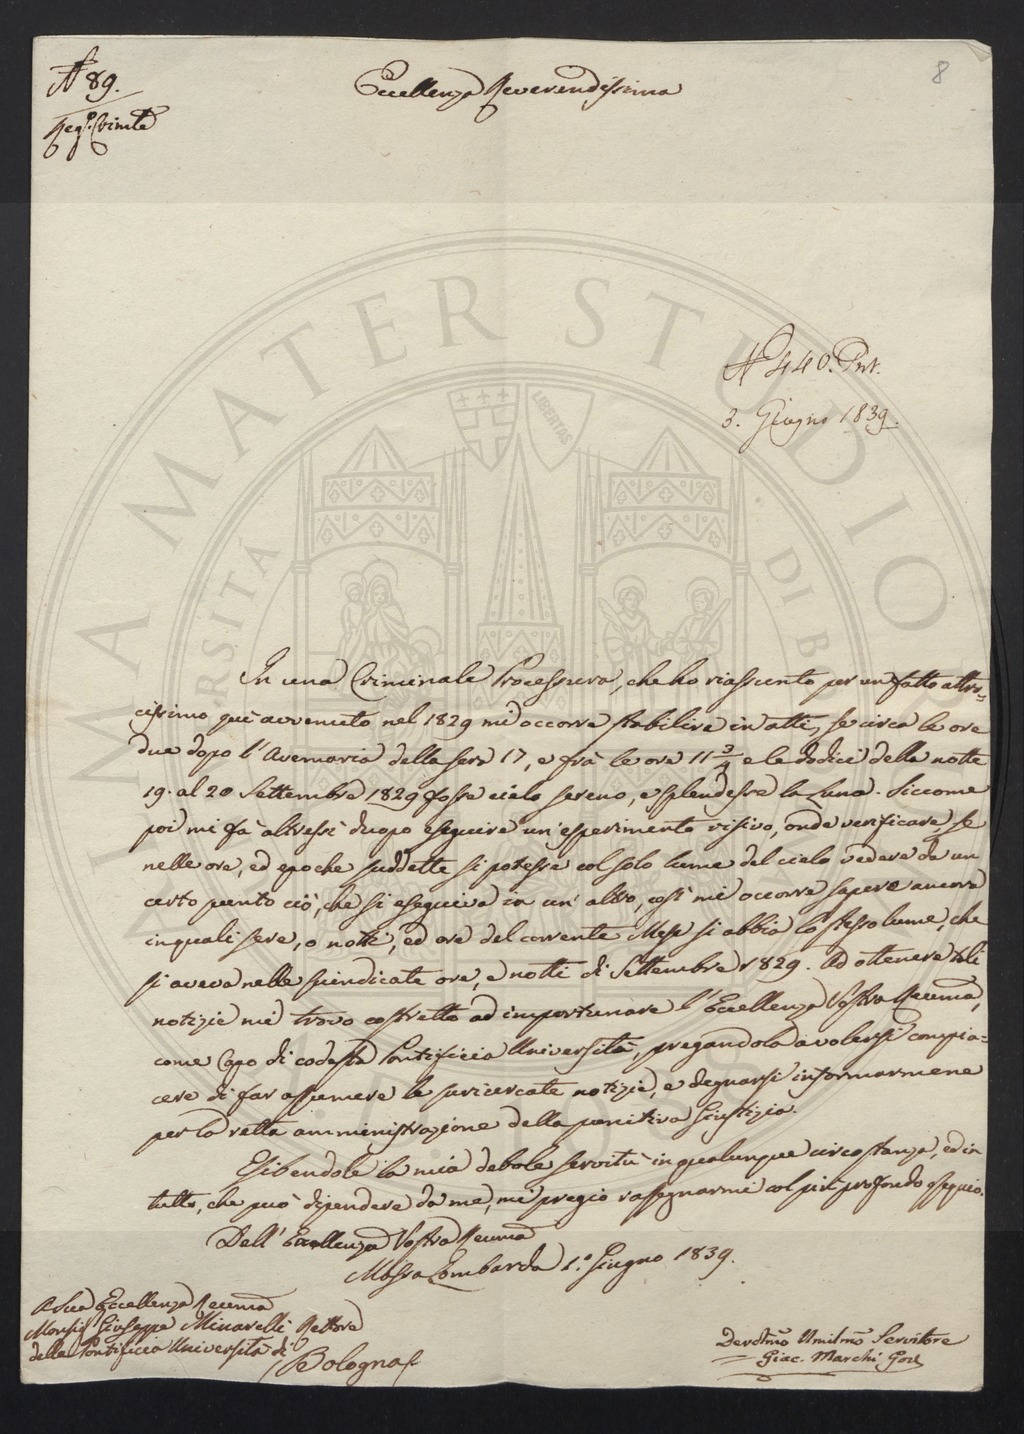 N 89.
Reg.o Crimle
Eccellenza Reverendissima
8
N 440. Prot.
3. Giugno 1839.
In una Criminale Processura, che ho riassunto per un fatto atro=
cissimo quì avvenuto nel 1829 mi occorre stabilire in atti, se circa le ore
due dopo l'Avemaria della sera 17, e frà le ore 11 3/4 e le dodici della notte
19. al 20 Settembre 1829 fosse cielo sereno, e splendesse la Luna. Siccome
poi mi fà altressì duopo eseguire un'esperimento visivo, onde verificare, se
nelle ore, ed epoche suddette si potesse col solo lume del cielo vedere da un
certo punto ciò, che si eseguiva in un'altro, così mi occorre sapere ancora
in quali sere, o notti, ed ore del corrente Mese si abbia lo stesso lume, che
si aveva nelle sumdicate ore, e notti di Settembre 1829. Ad ottenere tali
notizie mi trovo costretto ad importunare l'Eccellenza Vostra Reverma,
come Capo di codesta Pontificia Università, pregandola a volersi compia=
cere di far assumere le suricercate notizie, e degnarsi informarmene
per la retta amministrazione della punitiva Giustizia.
Esibendole la mia debole servitù in qualunque circostanza, ed in
tutto, che può dipendere da me, mi pregio rassegnarmi col più profondo ossequio.
Dell'Eccellenza Vostra Reverma
Massa Lombarda 1.o Giugno 1839.
A Sua Eccellenza Reverma
Monsig Giuseppe Minarelli Rettore
della Pontificia Università di
Bologna
Devotmo Umilmo Servitore
Giac. Marchi Gov
ALMA MATER STUDIORUM
UNIVERSITÀ DI BOLOGNA
LIBERTAS